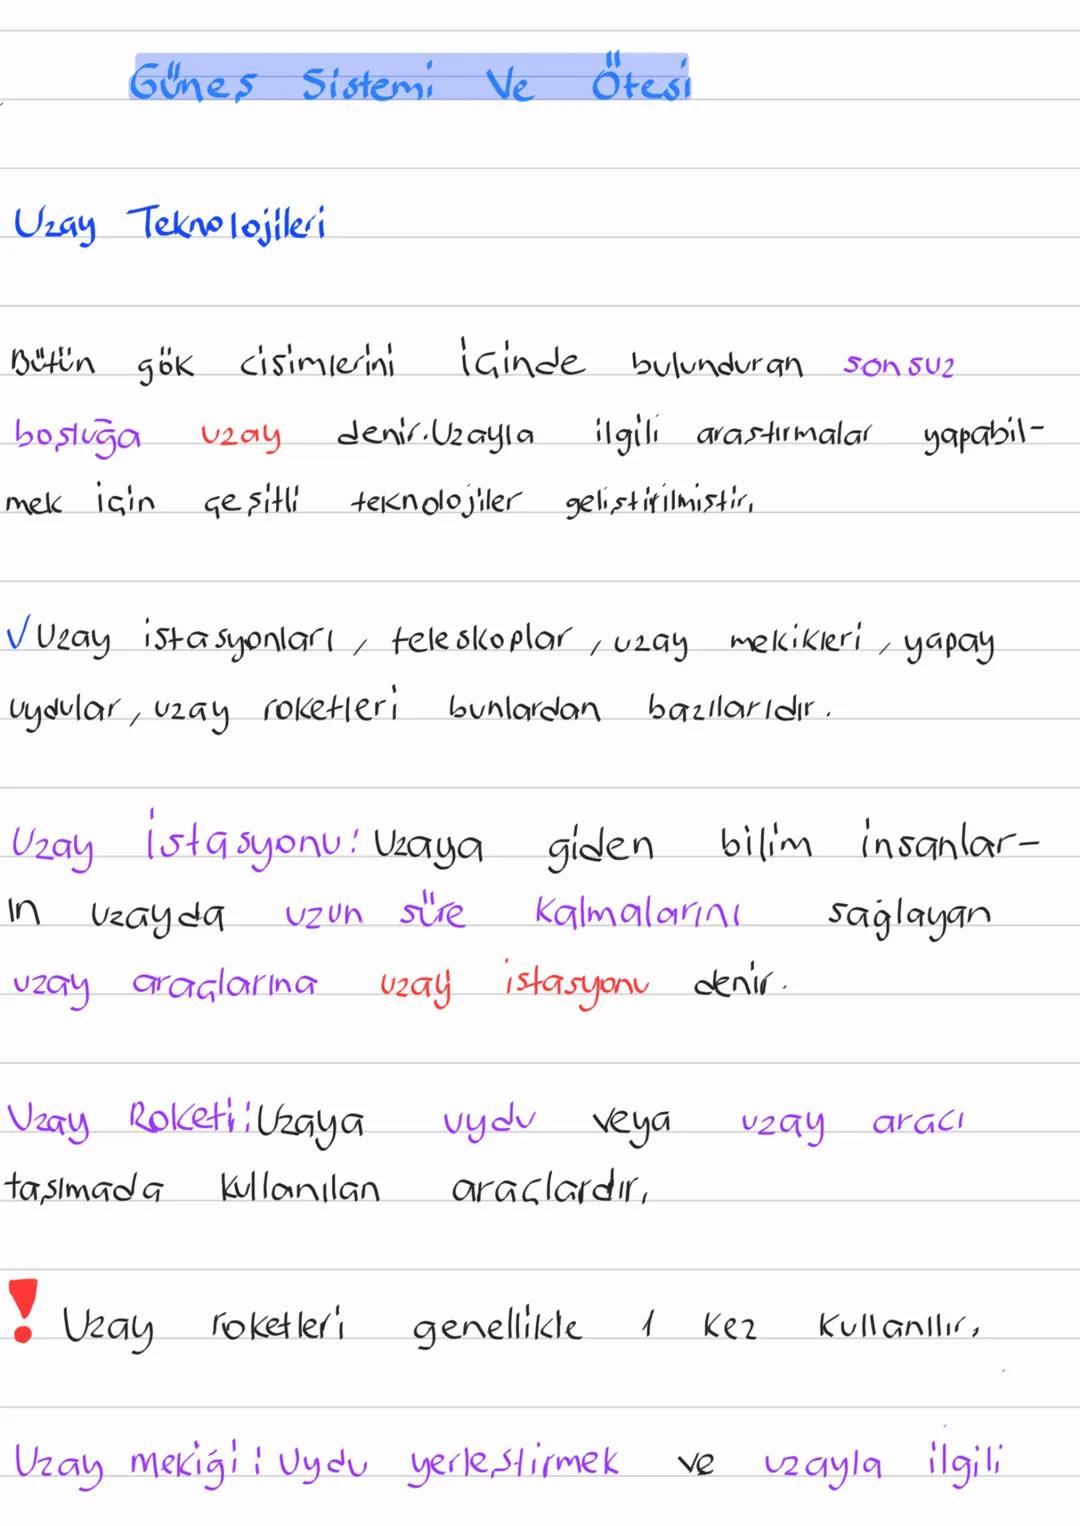 Güneş Sistemi Ve Ötesi
Uzay Teknolojileri
Bütün gök cisimlerini içinde bulunduran sonsuz
boşluğa uzay denir. Uzayla ilgili araştırmalar yapabil-
mek için çeşitli teknolojiler geliştirilmiştir.
✓ Uzay istasyonları, teleskoplar, uzay mekikleri, yapay
uydular, uzay roketleri bunlardan bazılarıdır.
Uzay istasyonu: Uzaya giden bilim insanlar-
ın uzayda uzun süre kalmalarını sağlayan
uzay araçlarına uzay istasyonu denir.
Uzay Roketi: Uzaya uydu veya uzay aracı
taşımada kullanılan araçlardır.
! Uzay roketleri genellikle 1 kez kullanılır.
Uzay mekiği: Uydu yerleştirmek ve uzayla ilgili